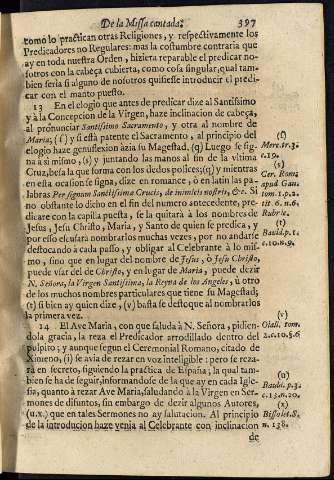 De la Missa cantada; 397
como lo practican otras Religiones, y respectivamente los
Predicadores no Regulares: mas la costumbre contraria que
ay en toda nuestra Orden, hiziera reparable el predicar no-
sotros con la cabeça cubierta, como cosa singular, qual tam-
bien seria si alguno de nosotros quisiesse introducir el predi-
car con el manto puesto.
13 En el elogio que antes de predicar dize al Santissimo
y à la Concepcion de la Virgen, haze inclinacion de cabeça,
al pronunciar Santissimo Sacramento, y otra al nombre de
Maria; (f) y si està patente el Sacramento, al principio del
elogio haze genuflexion àzia su Magestad. (q) Luego se sig-
na a si mismo, (s) y juntando las manos al fin de la vltima
Cruz, besa la que forma con los dedos polices; (q) y mientras
en esta ocasion se signa, dize en romance, ò en latin las pa-
labras Per signum Santissimæ Crucis, de inimicis nostris, &c. Si
no obstante lo dicho en el fin del numero antecedente, pre-
dicare con la capilla puesta, se la quitarà à los nombres de
Jesus, Jesu Christo, Maria, y Santo de quien se predica, y
por esso escusarà nombrarlos muchas vezes, por no andarse
destocando à cada passo, y obligar al Celebrante à lo mis-
mo, sino que en lugar del nombre de Jesus, ò Jesu Christo,
puede vsar del de Christo, y en lugar de Maria, puede dezir
N. Señora, la Virgen Santissima, la Reyna de los Angeles, ù otro
de los muchos nombres particulares que tiene su Magestad;
(t) si bien ay quien dize, (v) basta se destoque al nombrarlos
la primera vez.
14 El Ave Maria, con que saluda à N. Señora, pidien-
dola gracia, la reza el Predicador arrodillado dentro del
pulpito; y aunque segun el Ceremonial Romano, citado de
Ximeno, (i) se avia de rezar en voz inteligible: pero se reza-
rà en secreto, siguiendo la practica de España; la qual tam-
bien se ha de seguir, informandose de la que ay en cada Igle-
sia, quanto à rezar Ave Maria, saludando à la Virgen en Ser-
mones de difuntos, sin embargo de dezir algunos Autores,
(u.x.) que en tales Sermones no ay salutacion. Al principio
de la introducion haze venia al Celebrante con inclinacion
de
(f)
Mere. tr. 3.
c. 19.
(s)
Cer. Rom.
apud Gau.
tom. 1. p. 2.
tit. 6. n. 6.
Rubr. v.
(t)
Bauld. p. 1.
c. 10. n. 9.
(v)
Olall. tom.
2. c. 10. §. 6
(u)
Bauld. p. 3.
c. 13. n. 20.
(x)
Bissolet. S.
n. 138.